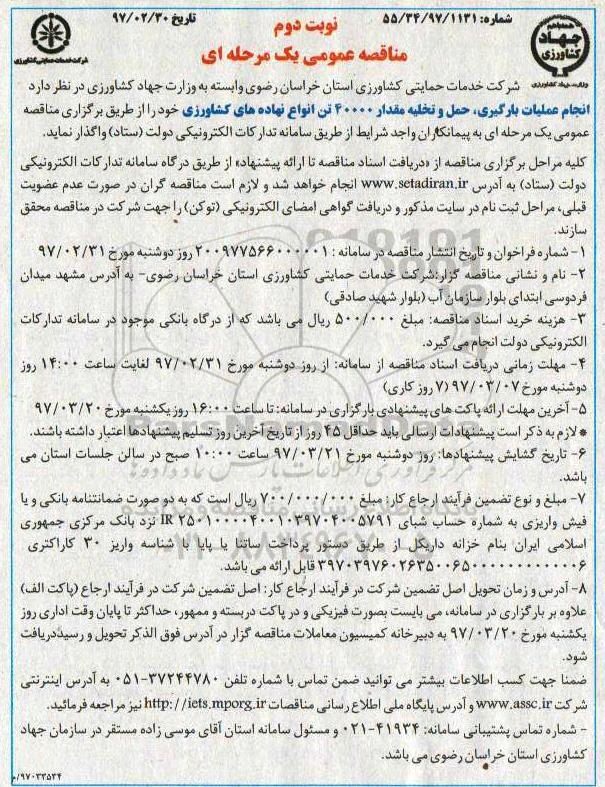 شماره: ۵۵/۳۴/۹۷/۱۱۳۱
نوبت دوم
تاریخ ۹۷/۰۲/۳۰
جهاد
کشاورزی
وزارت جهاد کشاورزی
شرکت خدمات حمایتی کشاورزی
مناقصه عمومی یک مرحله ای
شرکت خدمات حمایتی کشاورزی استان خراسان رضوی وابسته به وزارت جهاد کشاورزی در نظر دارد
انجام عملیات بارگیری، حمل و تخلیه مقدار ۴۰۰۰۰ تن انواع نهاده های کشاورزی خود را از طریق برگزاری مناقصه
عمومی یک مرحله ای به پیمانکاران واجد شرایط از طریق سامانه تدارکات الکترونیکی دولت (ستاد) واگذار نماید.
کلیه مراحل برگزاری مناقصه از «دریافت اسناد مناقصه تا ارائه پیشنهاد» از طریق درگاه سامانه تدارکات الکترونیکی
دولت (ستاد) به آدرس www.setadiran.ir انجام خواهد شد و لازم است مناقصه گران در صورت عدم عضویت
قبلی، مراحل ثبت نام در سایت مذکور و دریافت گواهی امضای الکترونیکی (توکن) را جهت شرکت در مناقصه محقق
سازند.
۱- شماره فراخوان و تاریخ انتشار مناقصه در سامانه : ۲۰۰۹۷۷۵۶۶۰۰۰۰۰۱ روز دوشنبه مورخ ۹۷/۰۲/۳۱
۲- نام و نشانی مناقصه گزار:شرکت خدمات حمایتی کشاورزی استان خراسان رضوی- به آدرس مشهد میدان
فردوسی ابتدای بلوار سازمان آب (بلوار شهید صادقی)
۳- هزینه خرید اسناد مناقصه: مبلغ ۵۰۰/۰۰۰ ریال می باشد که از درگاه بانکی موجود در سامانه تدارکات
الکترونیکی دولت انجام می گیرد.
۴- مهلت زمانی دریافت اسناد مناقصه از سامانه: از روز دوشنبه مورخ ۹۷/۰۲/۳۱ لغایت ساعت ۱۴:۰۰ روز
دوشنبه مورخ ۹۷/۰۳/۰۷ (۷ روز کاری)
۵- آخرین مهلت ارائه پاکت های پیشنهادی بارگزاری در سامانه: تا ساعت ۱۶:۰۰ روز یکشنبه مورخ ۹۷/۰۳/۲۰
* لازم به ذکر است پیشنهادات ارسالی باید حداقل ۴۵ روز از تاریخ آخرین روز تسلیم پیشنهادها اعتبار داشته باشند.
۶- تاریخ گشایش پیشنهادها: روز دوشنبه مورخ ۹۷/۰۳/۲۱ ساعت ۱۰:۰۰ صبح در سالن جلسات استان می
باشد.
۷- مبلغ و نوع تضمین فرآیند ارجاع کار: مبلغ ۷۰۰/۰۰۰/۰۰۰ ریال است که به دو صورت ضمانتنامه بانکی و یا
فیش واریزی به شماره حساب شبای IR ۲۵۰۱۰۰۰۰۴۰۰۱۰۳۹۷۰۴۰۰۵۷۹۱ نزد بانک مرکزی جمهوری
اسلامی ایران بنام خزانه داریکل از طریق دستور پرداخت ساتنا یا پایا با شناسه واریز ۳۰ کاراکتری
قابل ارائه می باشد.
۸- آدرس و زمان تحویل اصل تضمین شرکت در فرآیند ارجاع کار: اصل تضمین شرکت در فرآیند ارجاع (پاکت الف)
علاوه بر بارگزاری در سامانه، می بایست بصورت فیزیکی و در پاکت دربسته و ممهور، حداکثر تا پایان وقت اداری روز
یکشنبه مورخ ۹۷/۰۳/۲۰ به دبیرخانه کمیسیون معاملات مناقصه گزار در آدرس فوق الذکر تحویل و رسیددریافت
شود.
ضمنا جهت کسب اطلاعات بیشتر می توانید ضمن تماس با شماره تلفن ۳۷۲۴۴۷۸۰-۰۵۱ به آدرس اینترنتی
شرکت www.assc.ir و آدرس پایگاه ملی اطلاع رسانی مناقصات http://iets.mporg.ir نیز مراجعه فرمائید.
- شماره تماس پشتیبانی سامانه: ۴۱۹۳۴-۰۲۱ و مسئول سامانه استان آقای موسی زاده مستقر در سازمان جهاد
کشاورزی استان خراسان رضوی می باشد.
۹۷۰۳۳۵۳۴/م